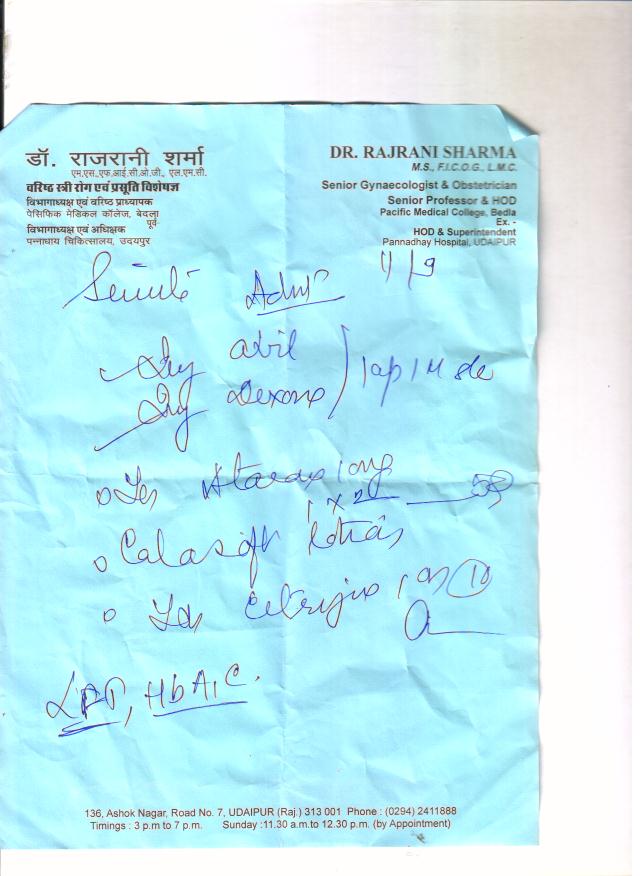 डॉ. राजरानी शर्मा
एम.एस.,एफ.आई.सी.ओ.जी., एल.एम.सी.
वरिष्ठ स्त्री रोग एवं प्रसूति विशेषज्ञ
विभागाध्यक्ष एवं वरिष्ठ प्राध्यापक
पेसिफिक मेडिकल कॉलेज, बेदला
पूर्व-
विभागाध्यक्ष एवं अधिक्षक
पन्नाधाय चिकित्सालय, उदयपुर
DR. RAJRANI SHARMA
M.S., F.I.C.O.G., L.M.C.
Senior Gynaecologist & Obstetrician
Senior Professor & HOD
Pacific Medical College, Bedla
Ex. -
HOD & Superintendent
Pannadhay Hospital, UDAIPUR
Inj Avil
Inj Dexona
Atarax 10mg
1 x 2
Calasoft lotion
LFT, HbA1C.
136, Ashok Nagar, Road No. 7, UDAIPUR (Raj.) 313 001 Phone : (0294) 2411888
Timings : 3 p.m to 7 p.m. Sunday :11.30 a.m.to 12.30 p.m. (by Appointment)